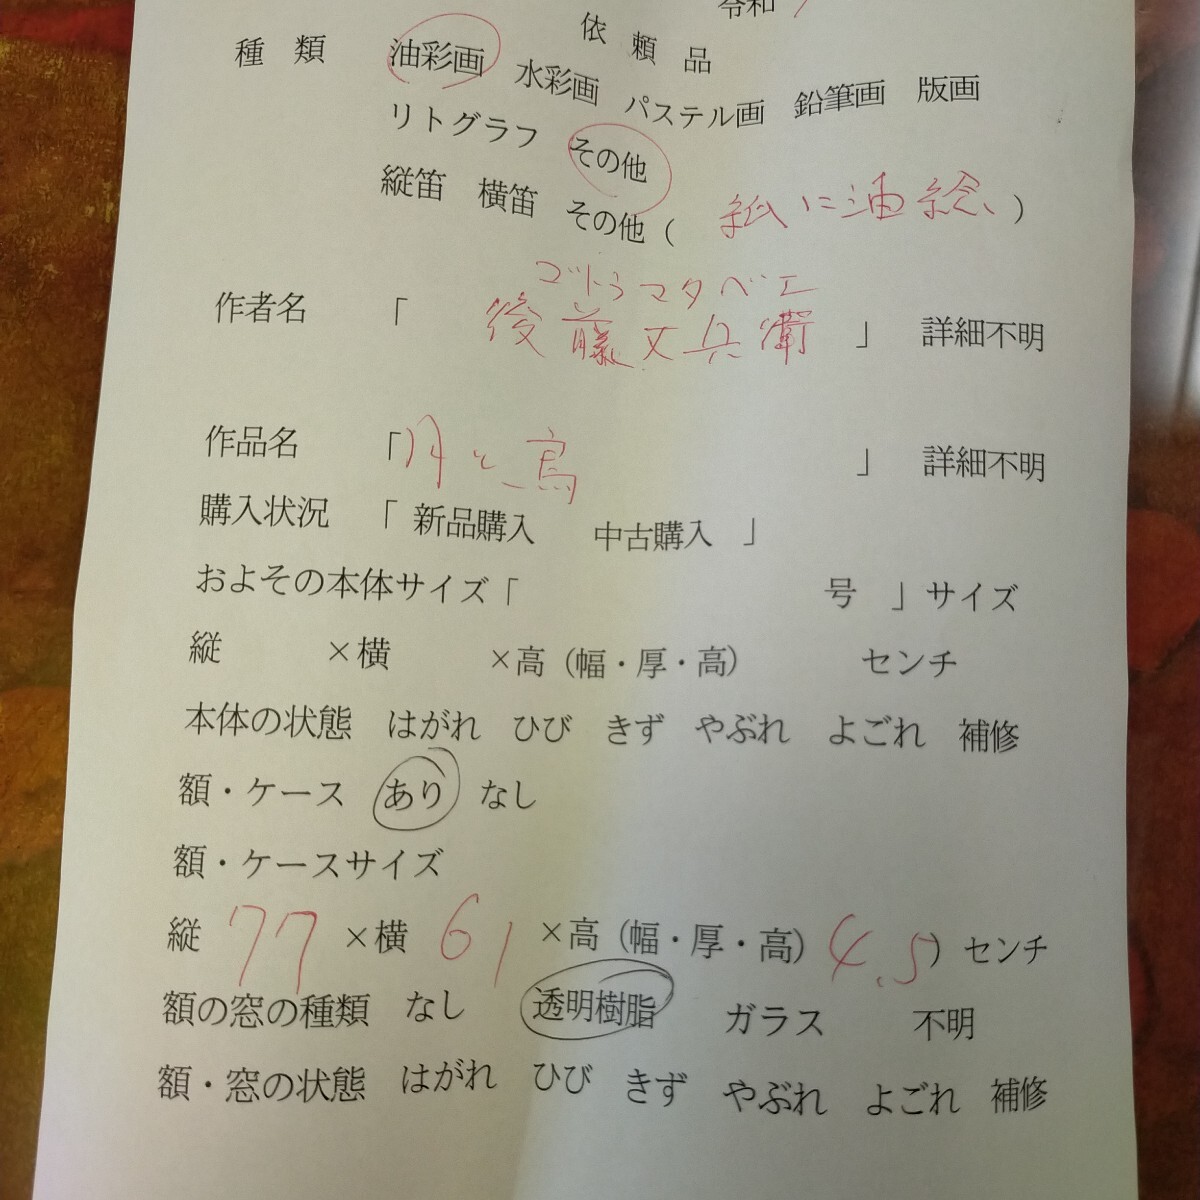 令和
依頼品
種類 油彩画 水彩画 パステル画 鉛筆画 版画
リトグラフ その他
縦笛 横笛 その他( 紙に油絵 )
ゴトウマタベエ
作者名 「 後藤又兵衛 」 詳細不明
作品名 「月と鳥 」 詳細不明
購入状況 「 新品購入 中古購入 」
およその本体サイズ「 号 」サイズ
縦 ×横 ×高(幅・厚・高) センチ
本体の状態 はがれ ひび きず やぶれ よごれ 補修
額・ケース あり なし
額・ケースサイズ
縦 77 ×横 61 ×高(幅・厚・高) 4.5) センチ
額の窓の種類 なし 透明樹脂 ガラス 不明
額・窓の状態 はがれ ひび きず やぶれ よごれ 補修